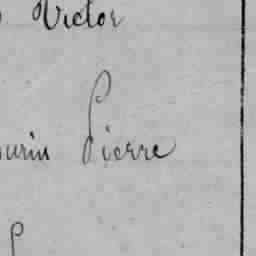 Victor
urin Pierre